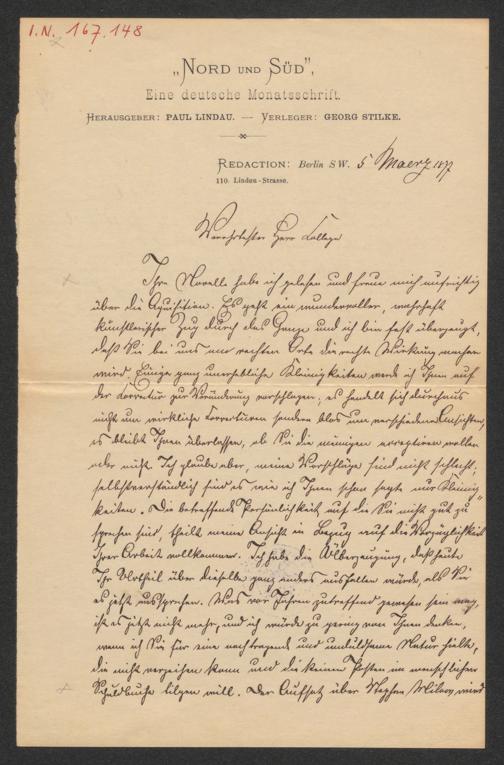 I.N. 167.148
„NORD UND SÜD",
Eine deutsche Monatsschrift.
HERAUSGEBER: PAUL LINDAU. — VERLEGER: GEORG STILKE.
REDACTION: Berlin SW. 5 Maerz 1877
110. Linden-Strasse.
Verehrtester Herr College
Ihre Novelle habe ich gelesen und freue mich aufrichtig
über die Aquisition. Es geht ein wundervoller, wahrhaft
künstlerischer Zug durch das Ganze und ich bin fest überzeugt,
daß Sie bei uns am rechten Orte die rechte Wirkung machen
wird. Einige ganz unerhebliche Kleinigkeiten werde ich Ihnen auf
der Correctur zur Veränderung vorschlagen; es handelt sich durchaus
nicht um wirkliche Correcturen sondern blos um verschiedene Ansichten,
es bleibt Ihnen überlassen, ob Sie die meinigen acceptiren wollen
oder nicht. Ich glaube aber, meine Vorschläge sind nicht schlecht;
selbstverständlich sind es wie ich Ihnen schon sagte nur Kleinig-
keiten. Die betreffende Persönlichkeit auf die Sie nicht gut zu
sprechen sind, theilt meine Ansicht in Bezug auf die Vorzüglichkeit
Ihrer Arbeit vollkommen. Ich habe die Überzeugung, daß heute
Ihr Urtheil über dieselbe ganz anders ausfallen würde, als Sie
es jetzt aussprechen. Was vor Jahren zutreffend gewesen sein mag,
ist es jetzt nicht mehr, und ich würde zu gering von Ihnen denken,
wenn ich Sie für eine nachtragende und unduldsame Natur hielte,
die nicht verzeihen kann und die keinen Posten im menschlichen
Schuldbuche tilgen will. Der Aufsatz über Stephan Milow wird